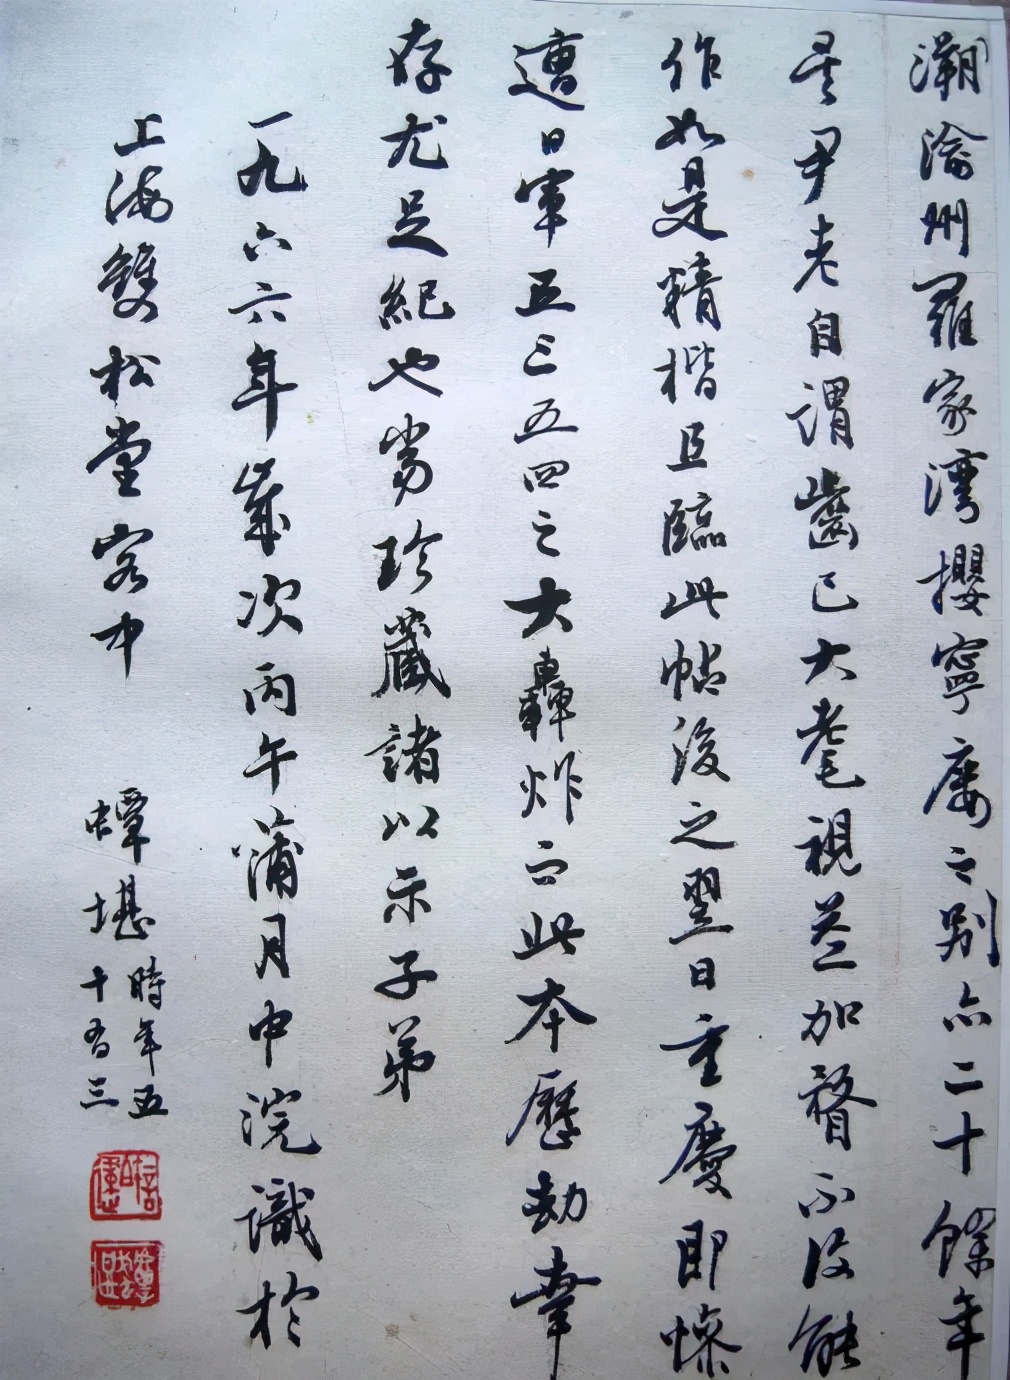 溯渝州羅家灣攖寧廔之別亦二十餘年
吴尹老自謂齒已大耄視益加瞀不復能
作如是精楷且臨此帖後之翌日重慶即慘
遭日軍五三五四之大轟炸而此本歷劫幸
存尤足紀也耑珍藏諸以示子弟
一九六六年歲次丙午蒲月中浣識於
上海雙松堂客中
蟫堪
時年五
十有三